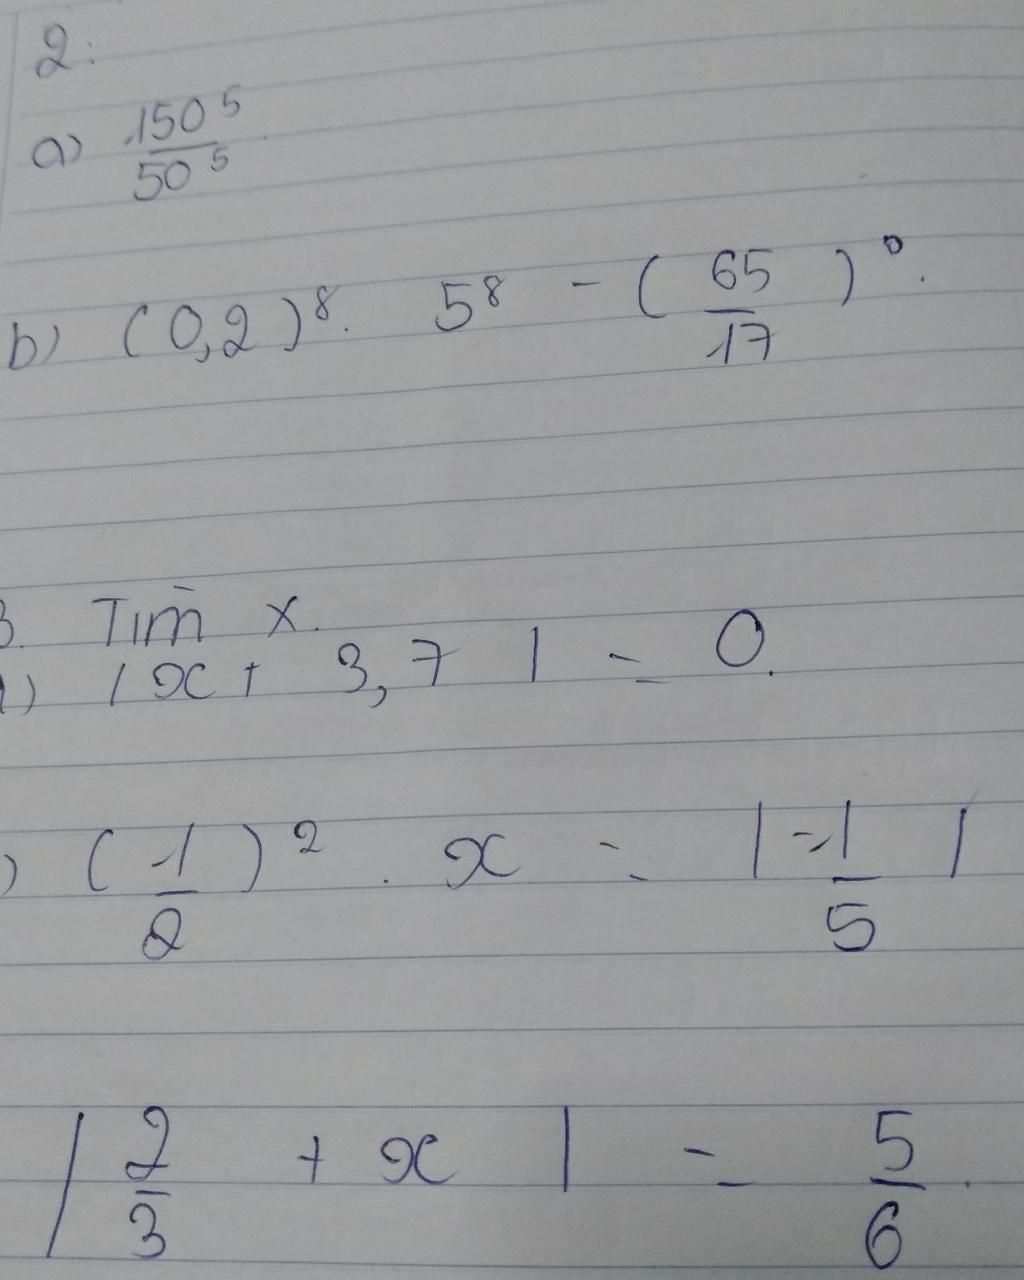 2:
a) 150⁵/50⁵
b) (0,2)⁸. 5⁸ - (65/17)⁰.
3. Tìm x.
a) |x + 3,7| = 0.
) (-1/2)² . x = |-1/5|
|2/3 + x| = 5/6.